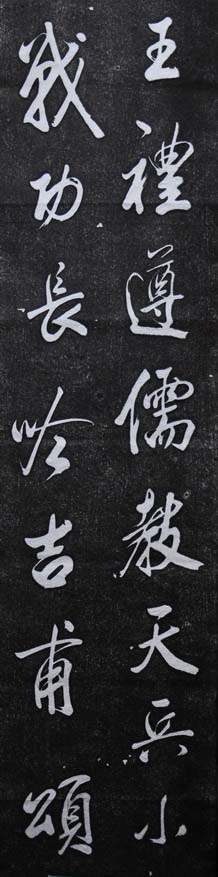 王禮遵儒教天兵小
戰功長吟吉甫頌